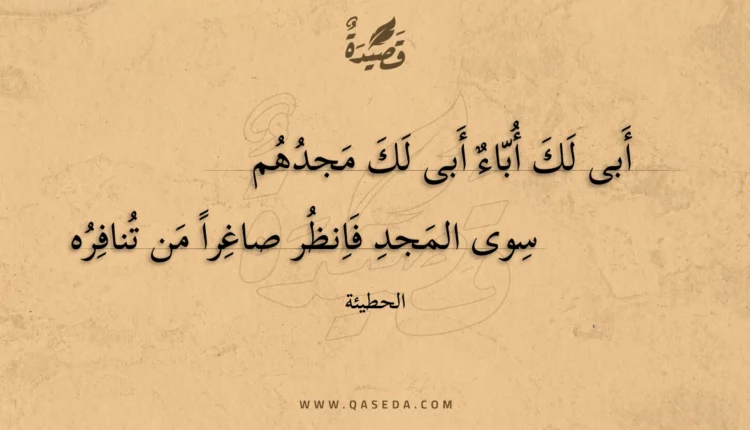 قَصِيْدَةٌ
أَبى لَكَ أُبّاءٌ أَبى لَكَ مَجدُهُم
سِوى المَجدِ فَاِنظُر صاغِراً مَن تُنافِرُه
الحطيئة
WWW.QASEDA.COM